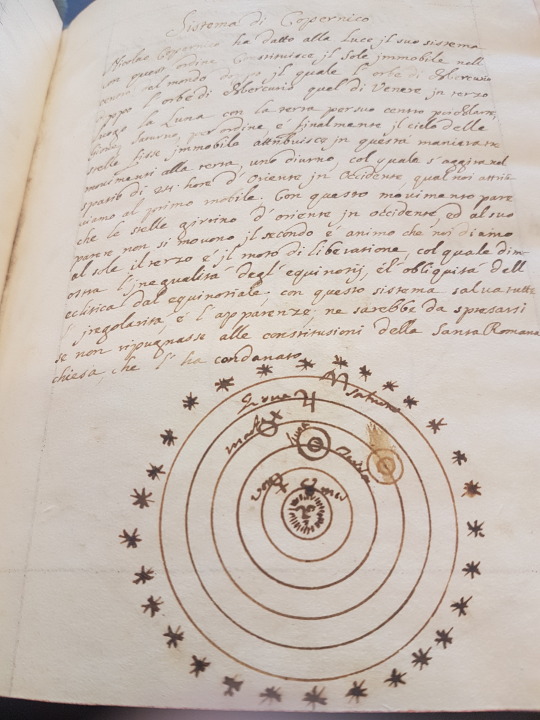 Sistema di Copernico
Nicolao Copernico ha datto alla Luce jl suo sistema
con quest ordine Constituisce jl Sole jmmobile nell
centro del mondo jl quale l'orbe di Mercurio
doppo l'orbe di Mercurio quel di Venere jn terzo
luogo la Luna con la terra per suo centro poi Marte,
Giove, Saturno, per ordine, e finalmente jl cielo delle
stelle fisse jmmobile attribuisce jn questa maniera tre
movimenti alla terra, uno diurno, col quale s'aggira nel
spatio di 24: hore d'Oriente jn Occidente, qual noi attrib
uiamo al primo mobile. Con questo movimento pare
che le stelle girrino d'oriente jn occidente, ed al suo
parere non si movono jl secondo é animo che noi diamo
al sole jl terzo é jl moto di liberatione, col quale dim
ostra l'jnequalitá degl'equinotij, é l'obliquitá dell
eclitica dal equinotiale. con questo sistema salva tutte
l'jregolaritá, é l'apparenze; ne sarebbe da spresarsi
se non ripugnasse alle constitusioni della Santa Romana
chiesa, che l'ha condanato
Saturno
Giove ♃
marte
luna